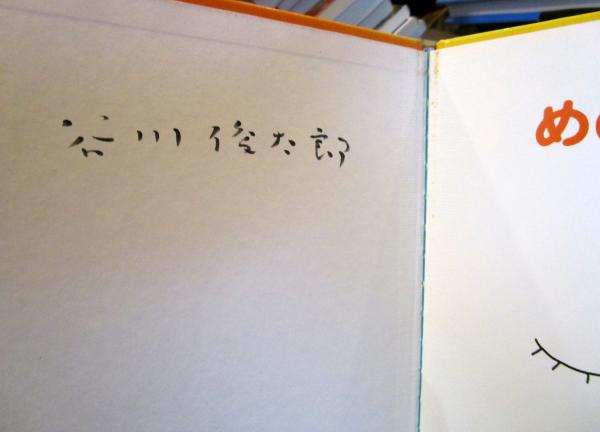 谷川俊太郎
め